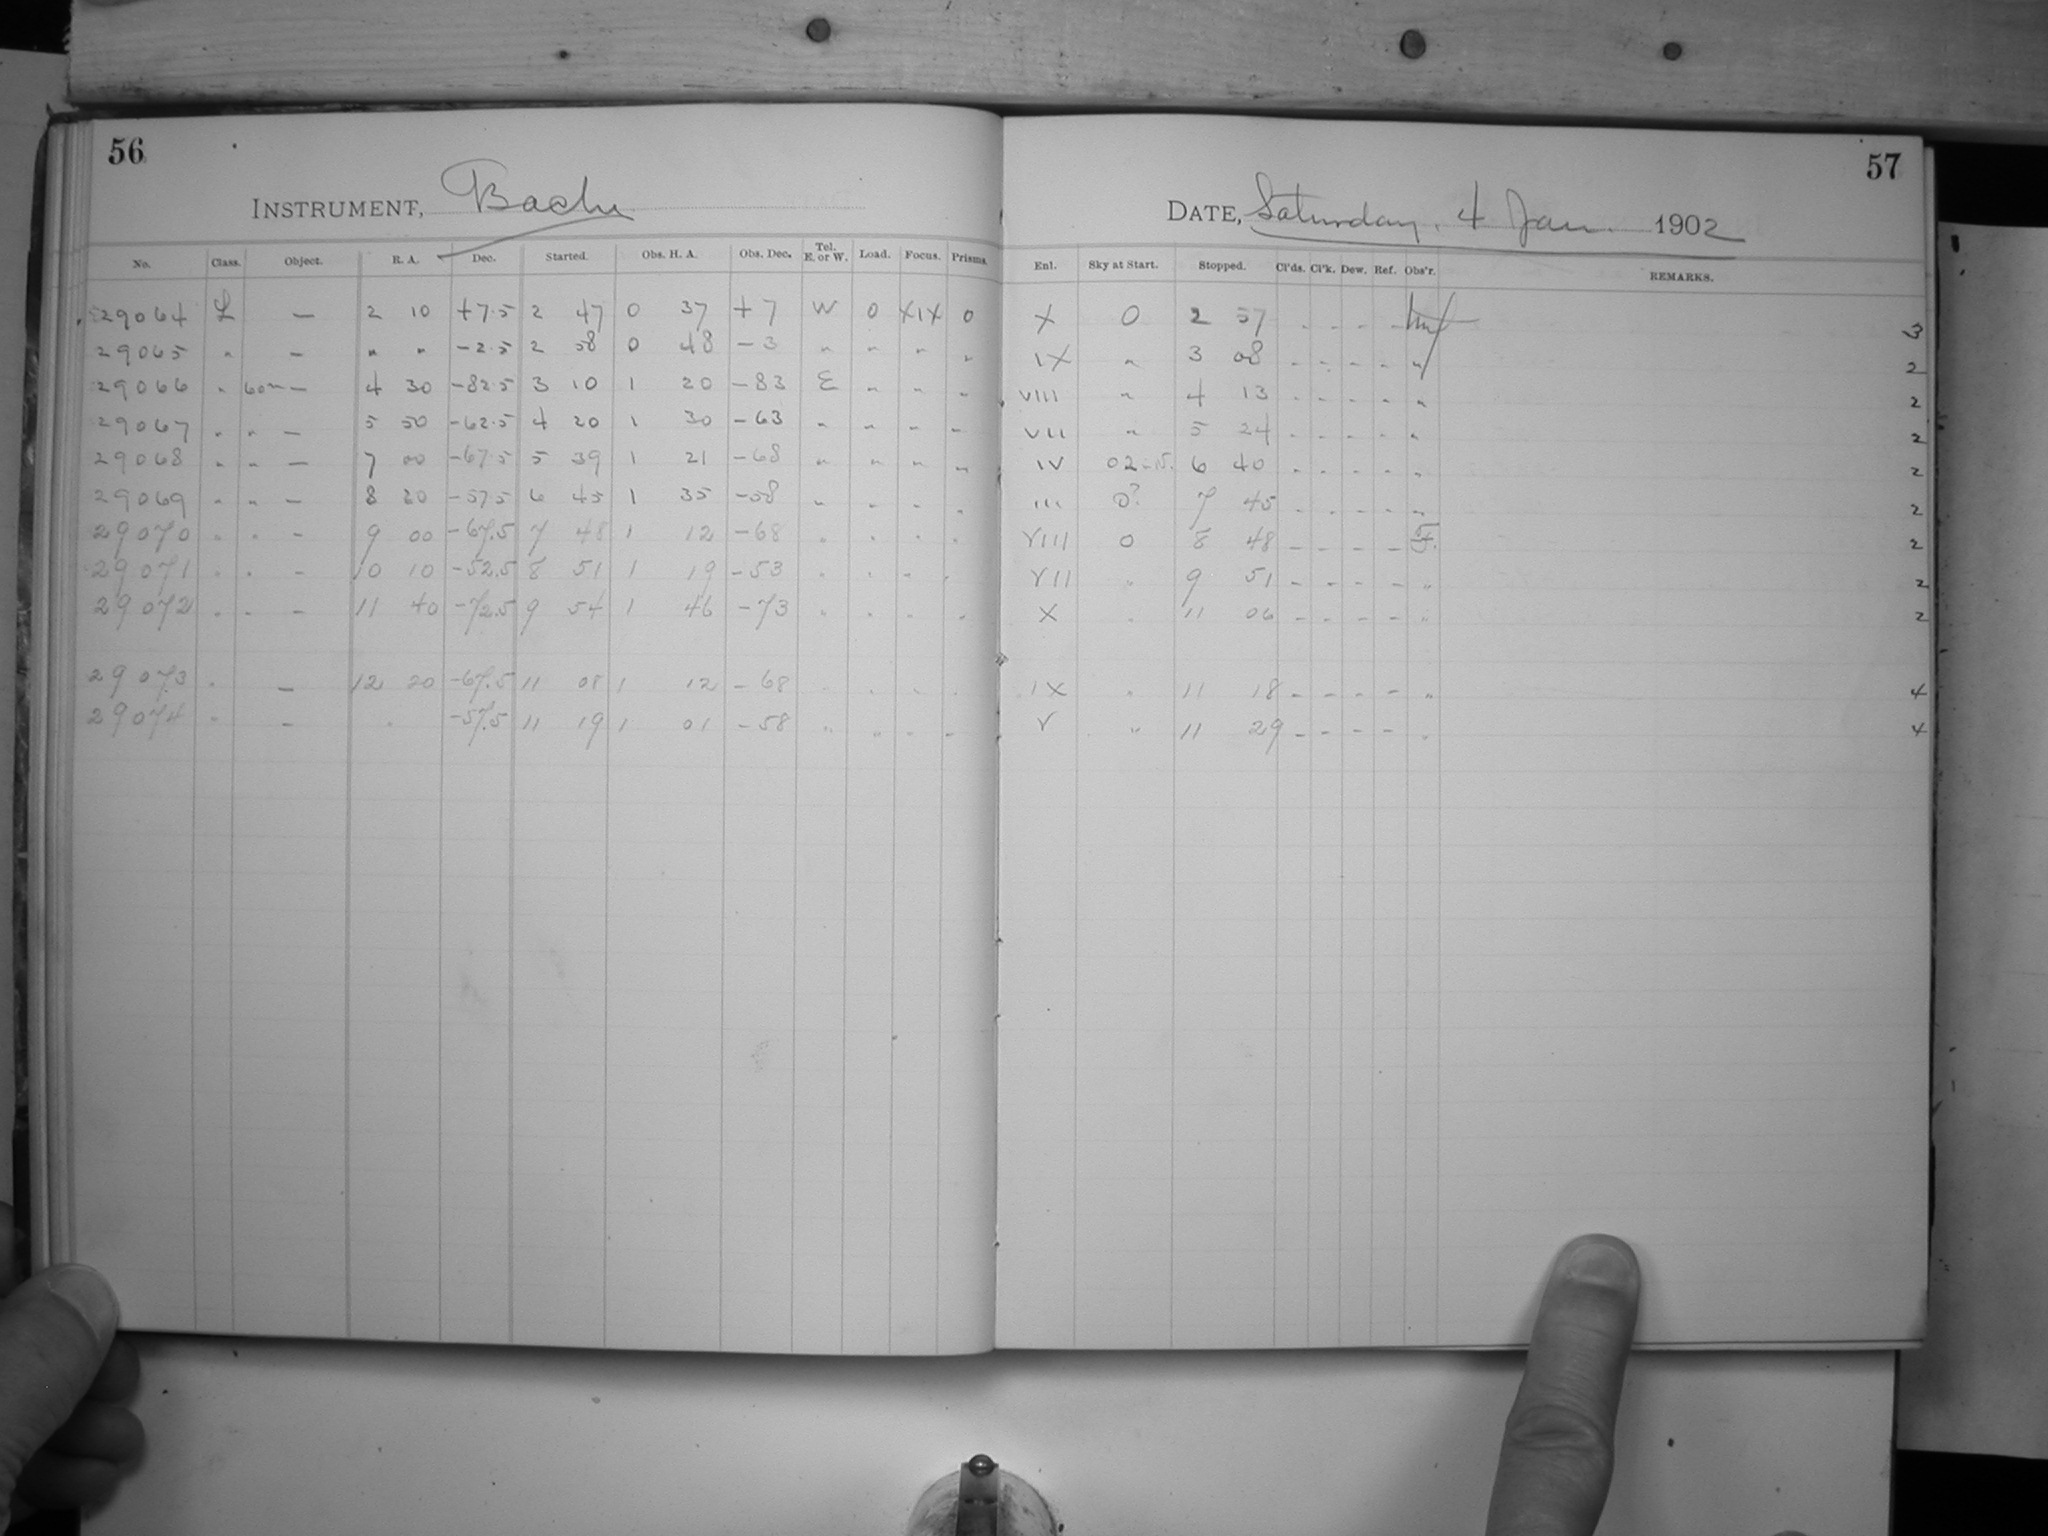 56
INSTRUMENT, Bache
No. Class. Object. R. A. Dec. Started. Obs. H. A. Obs. Dec. Tel. E. or W. Load. Focus. Prisms.
29064 L — 2 10 +7.5 2 47 0 37 +7 W 0 XIX 0
29065 " — " " -2.5 2 58 0 48 -3 " " " "
29066 " 60m — 4 30 -82.5 3 10 1 20 -83 E " " "
29067 " " — 5 50 -62.5 4 20 1 30 -63 " " " "
29068 " " — 7 00 -67.5 5 39 1 21 -68 " " " "
29069 " " — 8 20 -57.5 6 45 1 35 -58 " " " "
29070 " " — 9 00 -67.5 7 48 1 12 -68 " " " "
29071 " " — 10 10 -52.5 8 51 1 19 -53 " " " "
29072 " " — 11 40 -72.5 9 54 1 46 -73 " " " "
29073 " — 12 20 -67.5 11 08 1 12 -68 " " " "
29074 " — " -57.5 11 19 1 01 -58 " " " "
57
DATE, Saturday, 4 Jan. 1902
Enl. Sky at Start. Stopped. Cl'ds. Cl'k. Dew. Ref. Obs'r. REMARKS.
X 0 2 57 - - - - 3
IX " 3 08 - - - - " 2
VIII " 4 13 - - - - " 2
VII " 5 24 - - - - " 2
IV 6 40 - - - - " 2
III 0? 7 45 - - - - " 2
VIII 0 8 48 - - - - F. 2
VII " 9 51 - - - - " 2
X " 11 06 - - - - " 2
IX " 11 18 - - - - " 4
V " 11 29 - - - - " 4